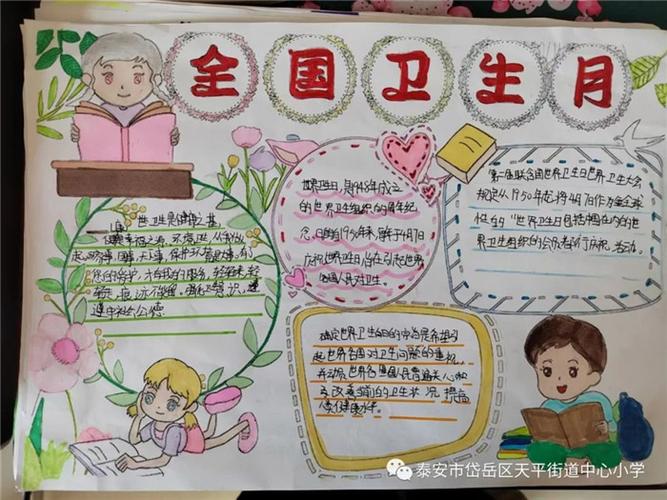 全国卫生月
世卫生是健康之基,
健康是幸福之源,环境卫生,从我做
起,
遵守社会公德
世界卫生日,是1948年成立
的世界卫生组织的周年纪
念日,自1950年来,每年于4月7日
庆祝世界卫生日,旨在引起世界
各国人民对卫生。
第一届联合国世界卫生日世界卫生大会
规定从1950年起,将4月7日作为全球
性的"世界卫生日包括中国在内的世
界卫生组织的会员都举行庆祝活动。
确定世界卫生日的宗旨是希望引
起世界各国对卫生问题的重视,
并动员世界各国人民普遍关心和
改善当前的卫生状况,提高
人类健康水平。
泰安市岱岳区天平街道中心小学